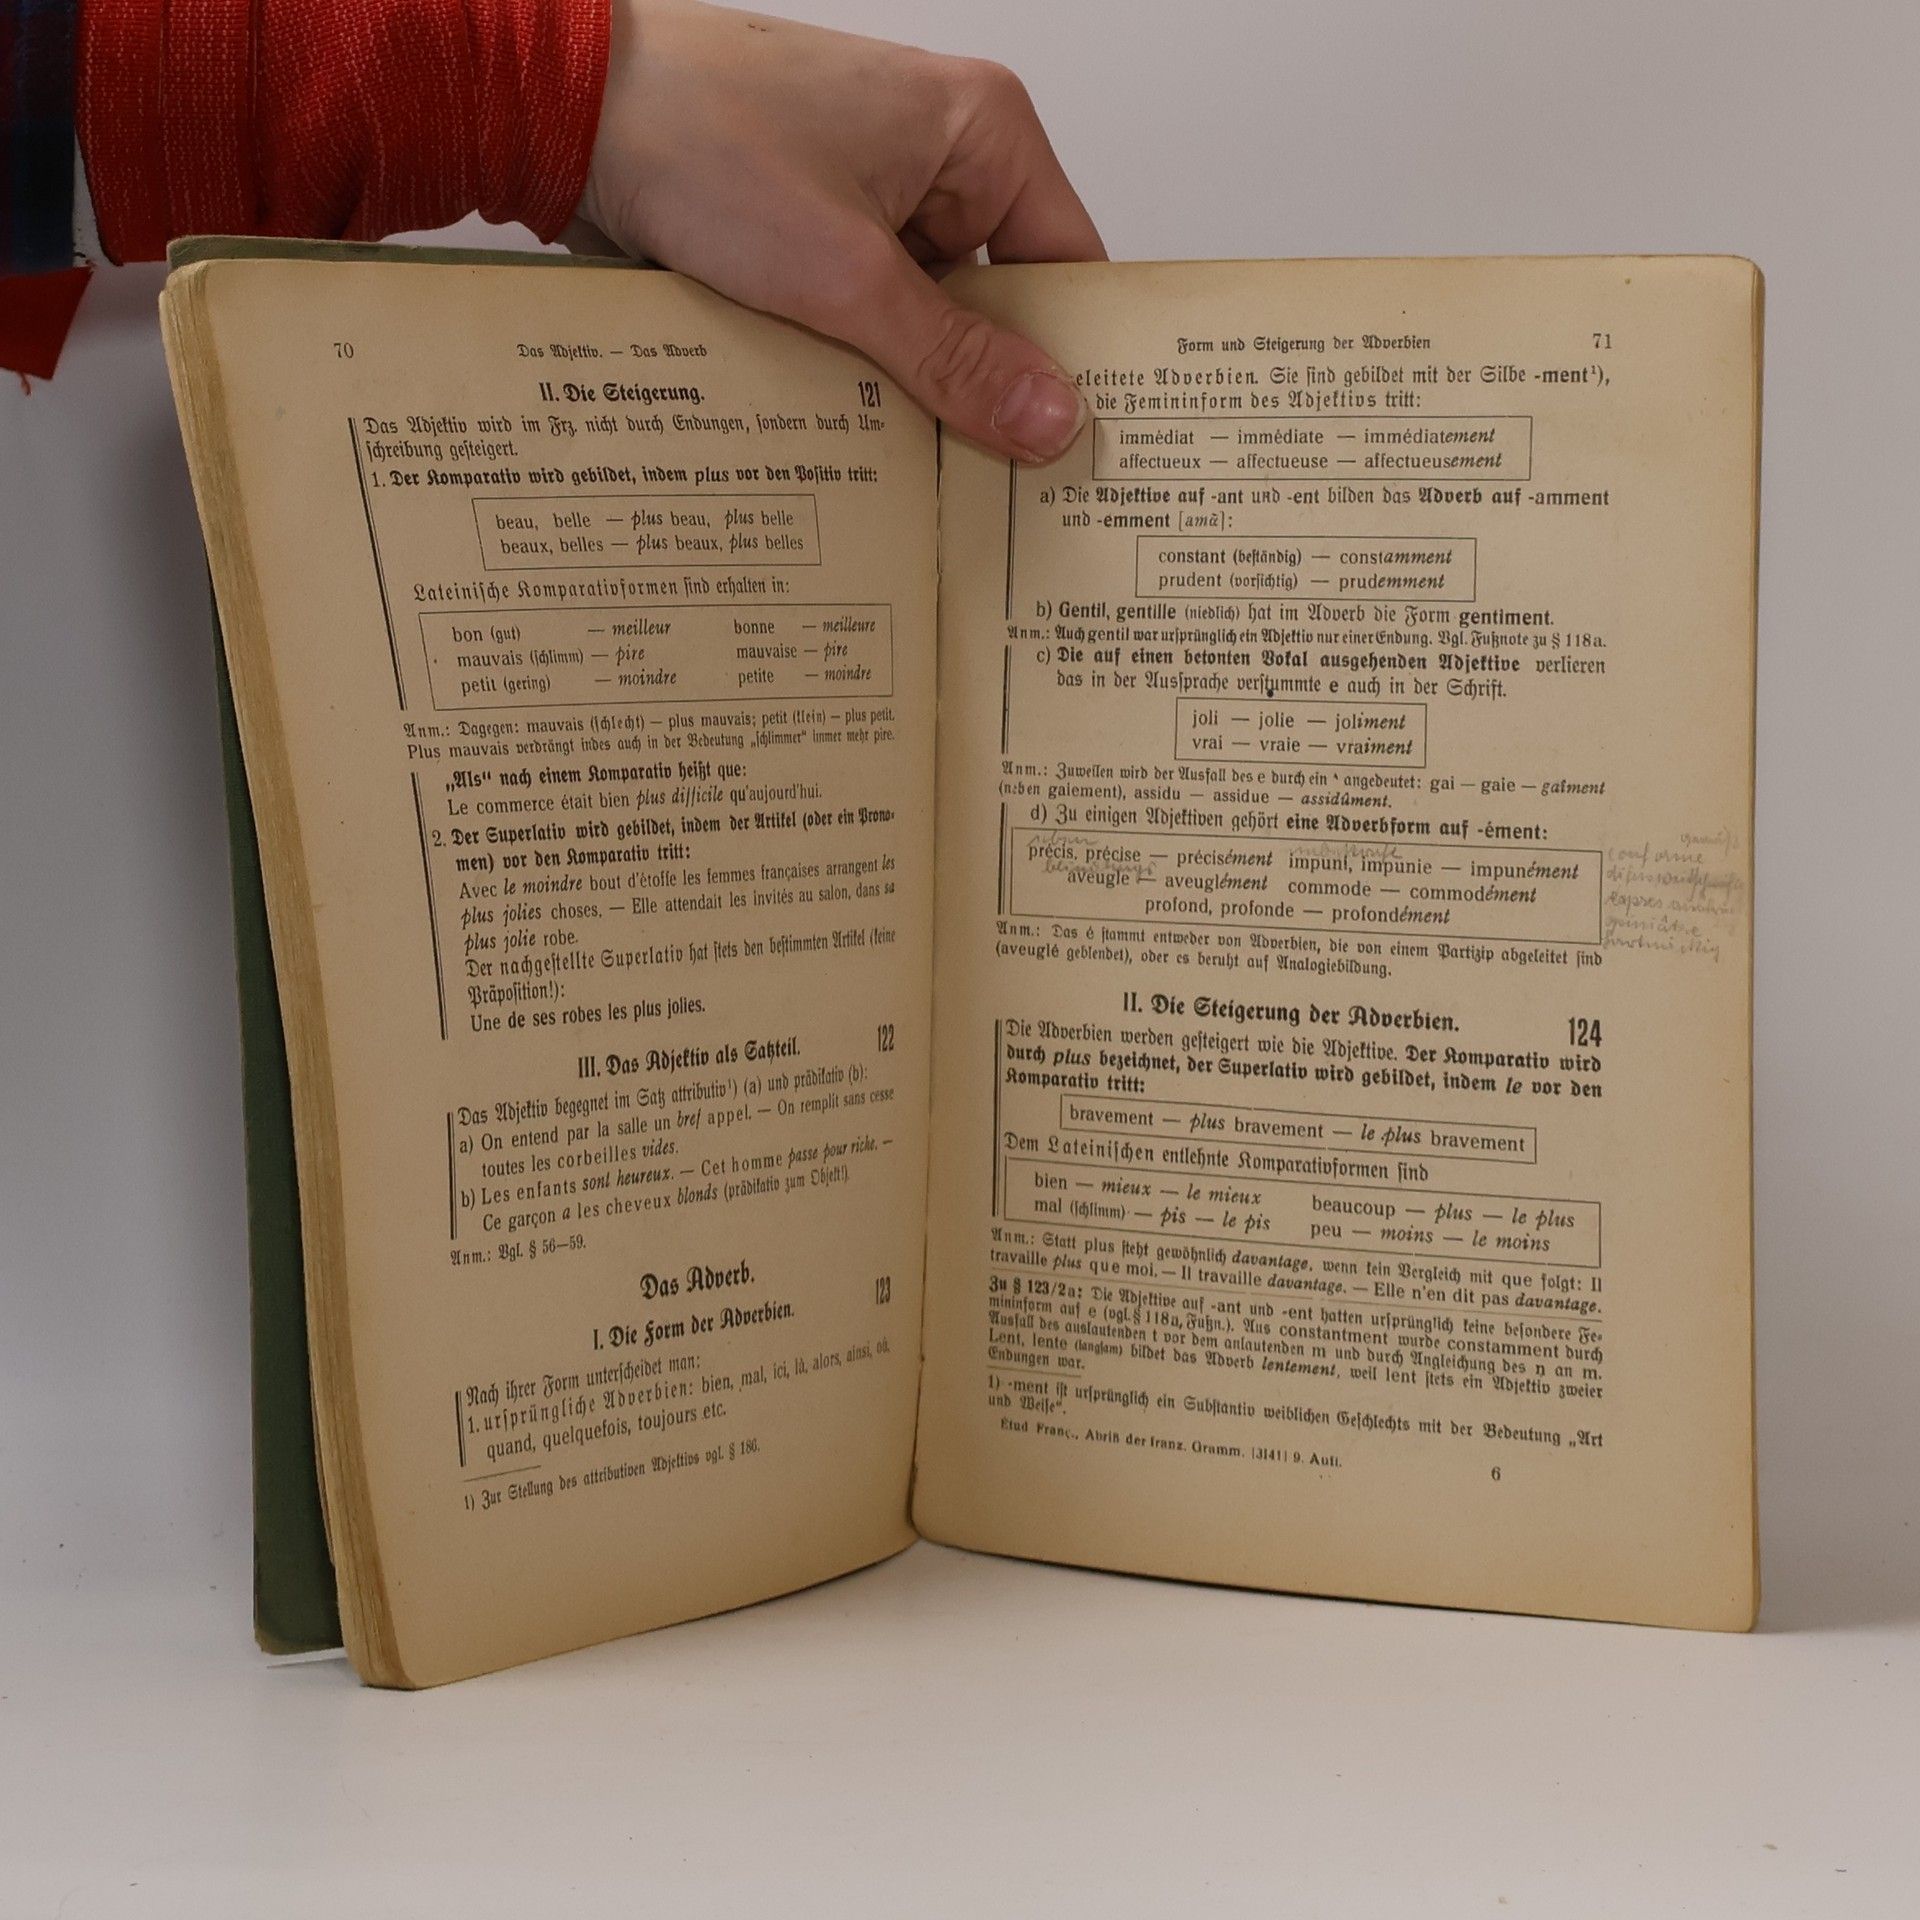 70
Das Adjektiv. — Das Adverb
II. Die Steigerung.
121
Das Adjektiv wird im Frz. nicht durch Endungen, sondern durch Um-
schreibung gesteigert.
1. Der Komparativ wird gebildet, indem plus vor den Positiv tritt:
beau, belle — plus beau, plus belle
beaux, belles — plus beaux, plus belles
Lateinische Komparativformen sind erhalten in:
bon (gut) — meilleur bonne — meilleure
mauvais (schlimm) — pire mauvaise — pire
petit (gering) — moindre petite — moindre
Anm.: Dagegen: mauvais (schlecht) — plus mauvais; petit (klein) — plus petit.
Plus mauvais verdrängt indes auch in der Bedeutung „schlimmer“ immer mehr pire.
„Als“ nach einem Komparativ heißt que:
Le commerce était bien plus difficile qu'aujourd'hui.
2. Der Superlativ wird gebildet, indem der Artikel (oder ein Prono-
men) vor den Komparativ tritt:
Avec le moindre bout d'étoffe les femmes françaises arrangent les
plus jolies choses. — Elle attendait les invités au salon, dans sa
plus jolie robe.
Der nachgestellte Superlativ hat stets den bestimmten Artikel (keine
Präposition!):
Une de ses robes les plus jolies.
III. Das Adjektiv als Satzteil.
122
Das Adjektiv begegnet im Satz attributiv¹) (a) und prädikativ (b):
a) On entend par la salle un bref appel. — On remplit sans cesse
toutes les corbeilles vides.
b) Les enfants sont heureux. — Cet homme passe pour riche. —
Ce garçon a les cheveux blonds (prädikativ zum Objekt!).
Anm.: Vgl. § 56—59.
Das Adverb.
I. Die Form der Adverbien.
123
Nach ihrer Form unterscheidet man:
1. ursprüngliche Adverbien: bien, mal, ici, là, alors, ainsi, où,
quand, quelquefois, toujours etc.
1) Zur Stellung des attributiven Adjektivs vgl. § 186.
Form und Steigerung der Adverbien
71
eleitete Adverbien. Sie sind gebildet mit der Silbe -ment¹),
die Femininform des Adjektivs tritt:
immédiat — immédiate — immédiatement
affectueux — affectueuse — affectueusement
a) Die Adjektive auf -ant und -ent bilden das Adverb auf -amment
und -emment [amɑ̃]:
constant (beständig) — constamment
prudent (vorsichtig) — prudemment
b) Gentil, gentille (niedlich) hat im Adverb die Form gentiment.
Anm.: Auch gentil war ursprünglich ein Adjektiv nur einer Endung. Vgl. Fußnote zu § 118a.
c) Die auf einen betonten Vokal ausgehenden Adjektive verlieren
das in der Aussprache verstummte e auch in der Schrift.
joli — jolie — joliment
vrai — vraie — vraiment
Anm.: Zuweilen wird der Ausfall des e durch ein ^ angedeutet: gai — gaie — gaîment
(neben gaiement), assidu — assidue — assidûment.
d) Zu einigen Adjektiven gehört eine Adverbform auf -ément:
précis, précise — précisément impuni, impunie — impunément
aveugle — aveuglément commode — commodément
profond, profonde — profondément
conforme
opiniâtre
Anm.: Das é stammt entweder von Adverbien, die von einem Partizip abgeleitet sind
(aveuglé geblendet), oder es beruht auf Analogiebildung.
II. Die Steigerung der Adverbien.
124
Die Adverbien werden gesteigert wie die Adjektive. Der Komparativ wird
durch plus bezeichnet, der Superlativ wird gebildet, indem le vor den
Komparativ tritt:
bravement — plus bravement — le plus bravement
Dem Lateinischen entlehnte Komparativformen sind
bien — mieux — le mieux beaucoup — plus — le plus
mal (schlimm) — pis — le pis peu — moins — le moins
Anm.: Statt plus steht gewöhnlich davantage, wenn kein Vergleich mit que folgt: Il
travaille plus que moi. — Il travaille davantage. — Elle n'en dit pas davantage.
Zu § 123/2a: Die Adjektive auf -ant und -ent hatten ursprünglich keine besondere Fe-
mininform auf e (vgl. § 118a, Fußn.). Aus constantment wurde constamment durch
Ausfall des auslautenden t vor dem anlautenden m und durch Angleichung des n an m.
Lent, lente (langsam) bildet das Adverb lentement, weil lent stets ein Adjektiv zweier
Endungen war.
1) -ment ist ursprünglich ein Substantiv weiblichen Geschlechts mit der Bedeutung „Art
und Weise“.
Étud Franç., Abriß der franz. Gramm. [3141] 9. Aufl.
6